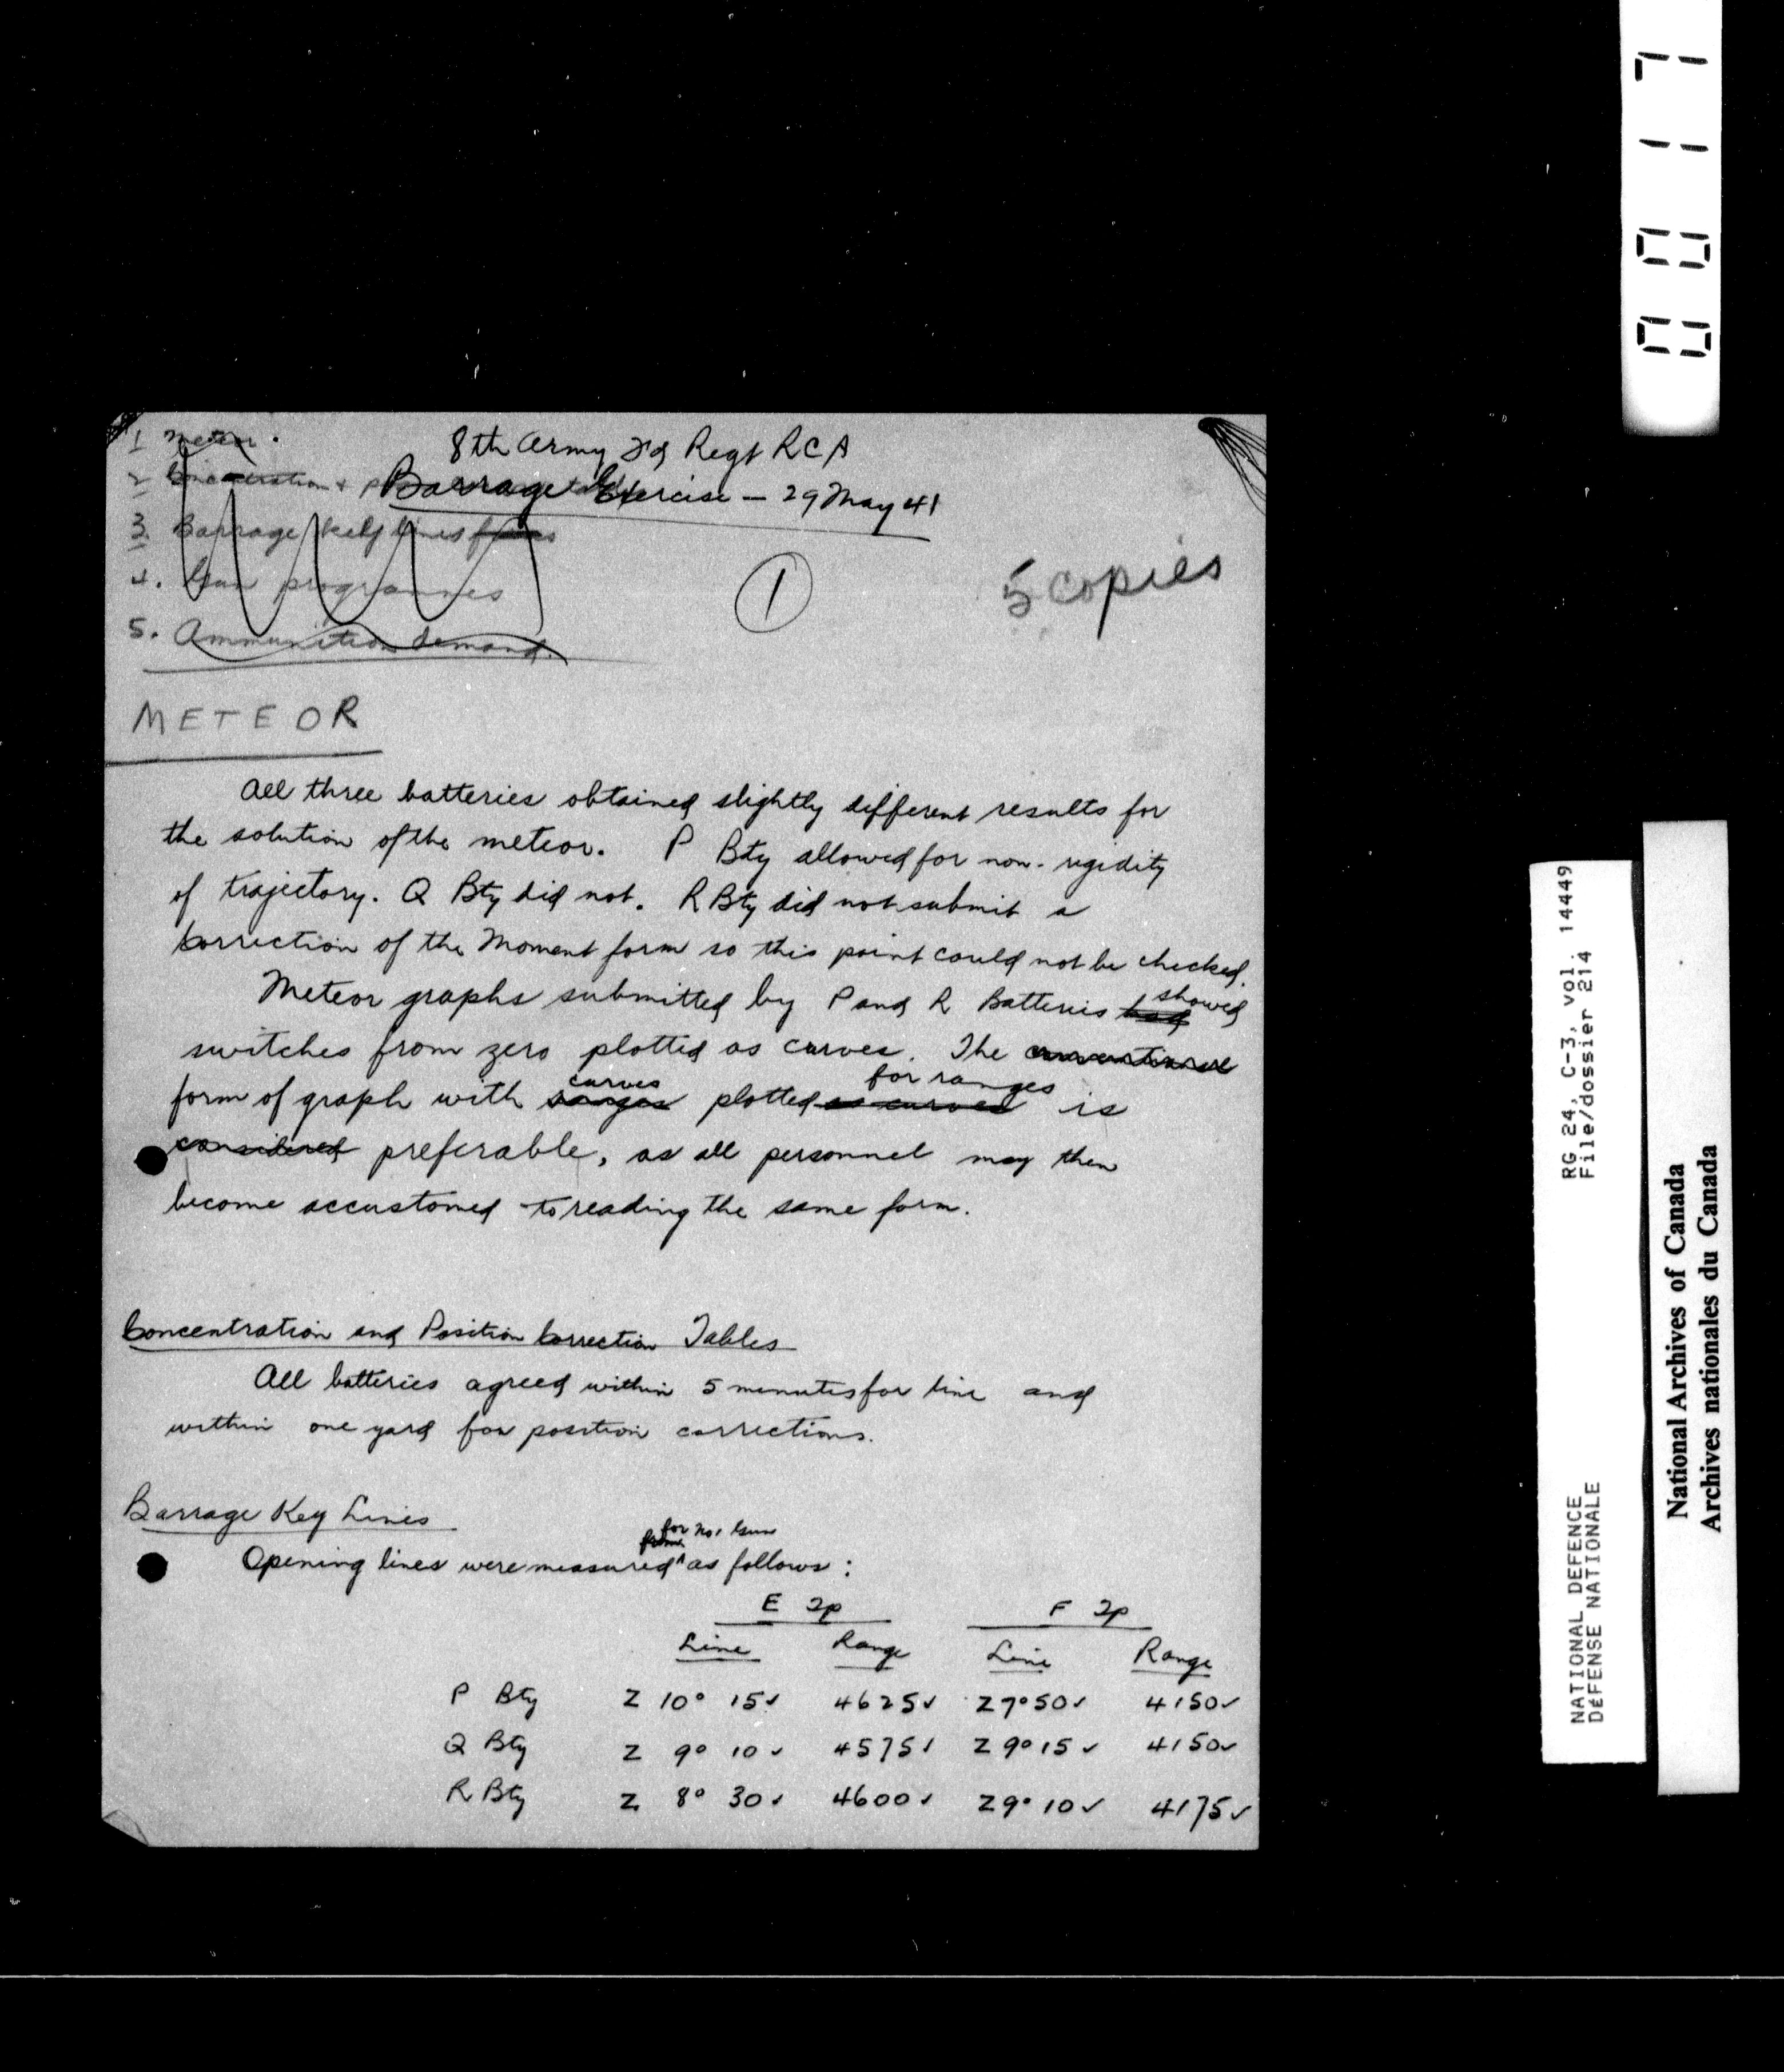 1 Meteor.
8th Army Fd Regt RCA
2 Concentration +
Barrage Exercise — 29 May 41
3. Barrage key lines
4. Gun programmes
5. Ammunition demand.
1
5 copies
METEOR
All three batteries obtained slightly different results for
the solution of the meteor. P Bty allowed for non-rigidity
of trajectory. Q Bty did not. R Bty did not submit a
Correction of the Moment form so this point could not be checked.
Meteor graphs submitted by P and R Batteries had showed
switches from zero plotted as curves. The conventional
form of graph with ranges curves plotted as curves for ranges is
considered preferable, as all personnel may then
become accustomed to reading the same form.
Concentration and Position Correction Tables
All batteries agreed within 5 minutes for line and
within one yard for position corrections.
Barrage Key Lines
from for No 1 Gun
Opening lines were measured ^ as follows:
E Tp F Tp
Line Range Line Range
P Bty Z 10° 15✓ 4625✓ Z7°50✓ 4150✓
Q Bty Z 9° 10✓ 4575✓ Z9°15✓ 4150✓
R Bty Z 8° 30✓ 4600✓ Z9°10✓ 4175✓
0017
RG 24, C-3, vol. 14449
File/dossier 214
NATIONAL DEFENCE
DÉFENSE NATIONALE
National Archives of Canada
Archives nationales du Canada